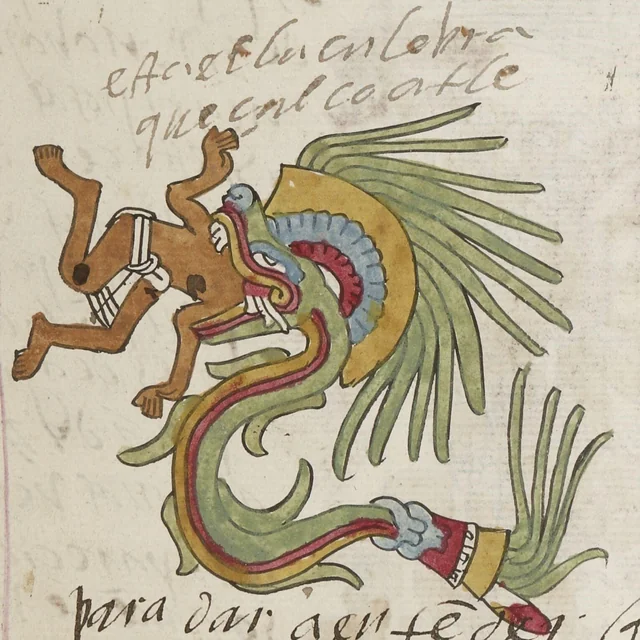 esta es la culebra
queçalcoatle
para dar a entēder